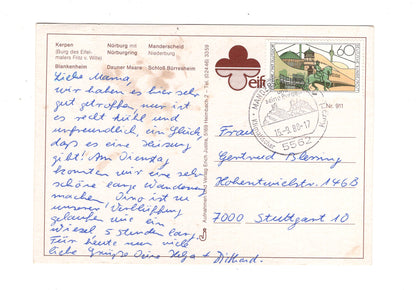 Kerpen
(Burg des Eifel-
malers Fritz v. Wille)
Nürburg mit
Nürburgring
Manderscheid
Niederburg
Blankenheim
Dauner Maare
Schloß Bürresheim
Liebe Mama,
wir haben es hier sehr
gut getroffen, nur ist
es recht kühl und
unfreundlich, ein Glück
daß es eine Heizung
gibt! Am Dienstag
konnten wir eine sehr
schöne lange Wanderung
machen, Dino ist zu
unserer Verblüffung
gelaufen wie ein
Wiesel 5 Stunden lang.
Für heute nun viele
liebe Grüße Deine Helga + Dithard.
Aufnahmen und Verlag Erich Justra, 5169 Heimbach 2 - Tel. (02446) 3359
eifel
60
5562
Nr. 911
Frau
Gertrud Blessing
Hohentwielstr. 146B
7000 Stuttgart 10